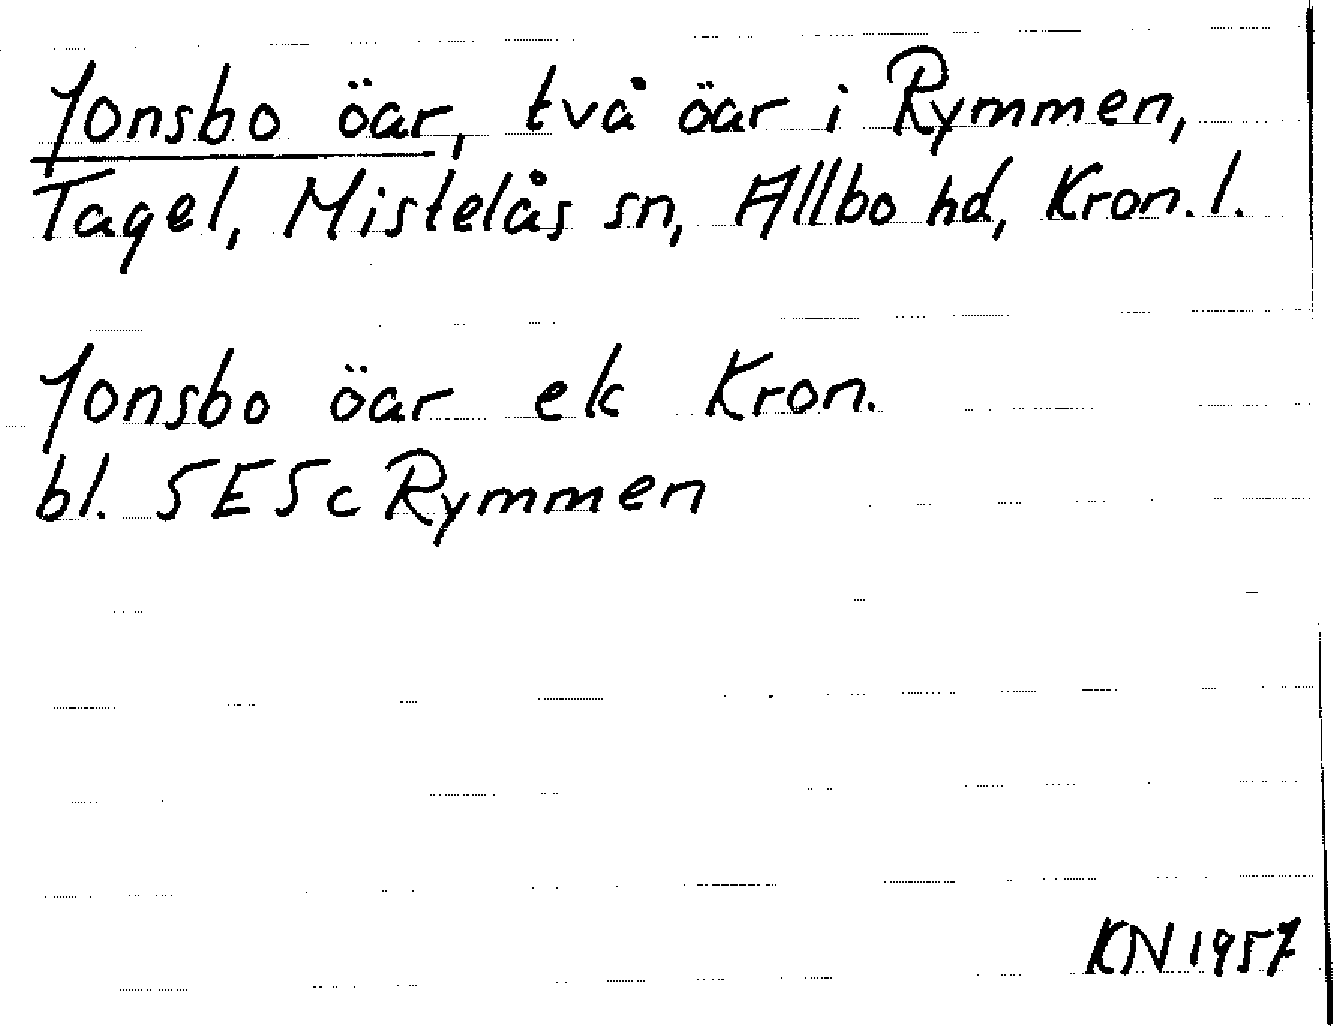 Jonsbo öar, två öar i Rymmen,
Tagel, Mistelås sn, Allbo hd, Kron. l.
Jonsbo öar ek Kron.
bl. 5E5c Rymmen
KN 1957